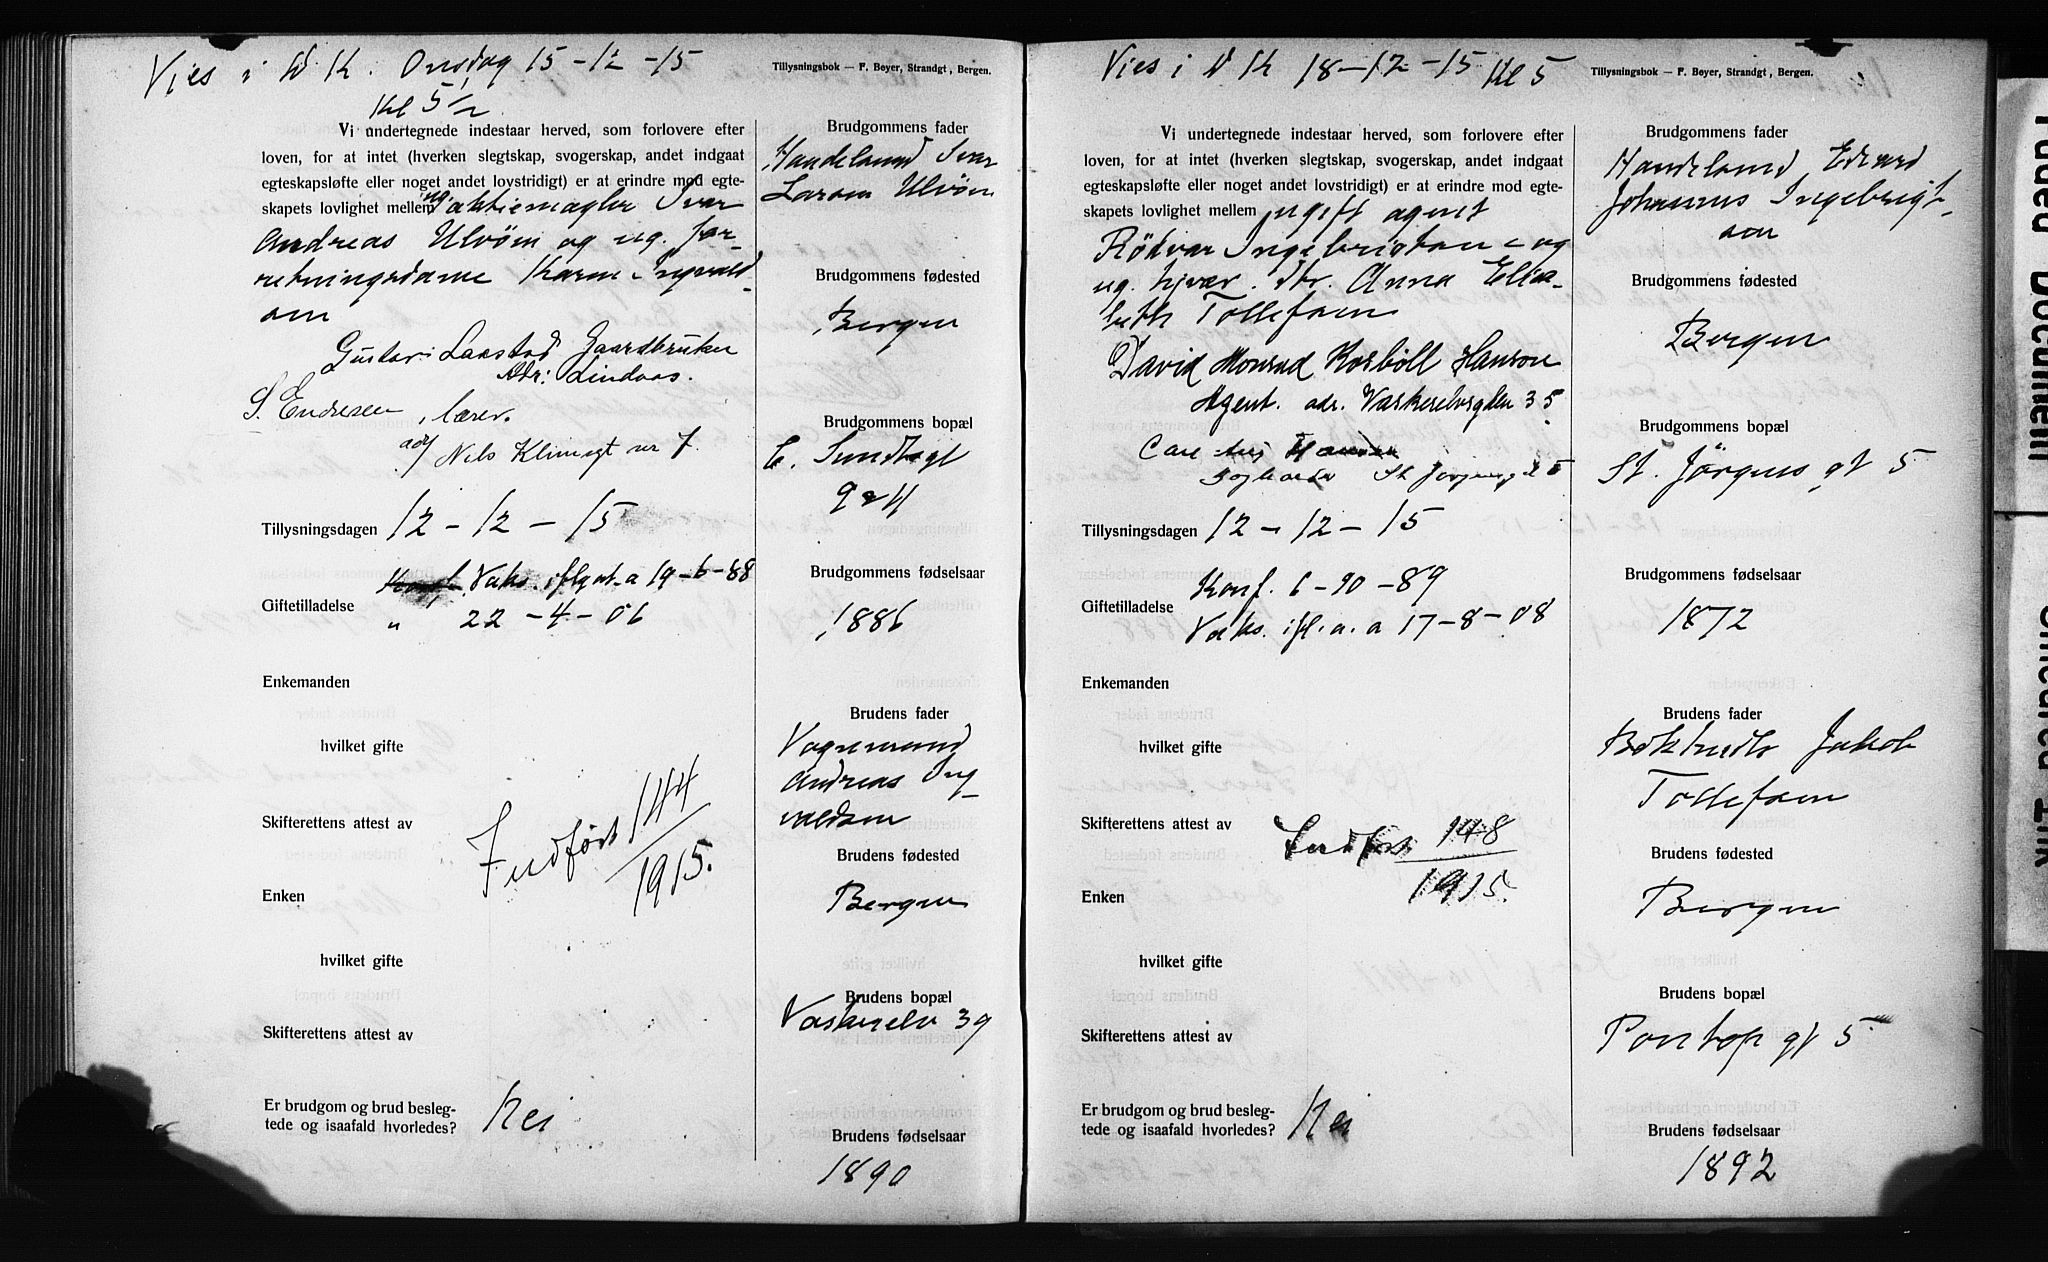 Vies i D K. Onsdag 15-12-15
Kl 5 1/2
Tillysningsbok — F. Beyer, Strandgt, Bergen.
Vi undertegnede indestaar herved, som forlovere efter
loven, for at intet (hverken slegtskap, svogerskap, andet indgaat
egteskapsløfte eller noget andet lovstridigt) er at erindre mod egte-
skapets lovlighet mellem ug. aktiemægler Ivar
Andreas Ulvøen og ug. for-
retningsdame Karen Ingvald-
sen
Gustav Laastad Gaardbruker
Adr: Lindaas.
S. Endresen, lærer.
adr Nils Klimsgt nr 7
Tillysningsdagen 12-12-15
Vaks. ifl. at. a 19-6-88
Giftetilladelse " 22-4-06
Enkemanden
hvilket gifte
Skifterettens attest av
Indført 144/1915.
Enken
hvilket gifte
Skifterettens attest av
Er brudgom og brud besleg-
tede og isaafald hvorledes? Nei
Brudgommens fader
Handelsmand Ivar
Larsen Ulvøen
Brudgommens fødested
Bergen
Brudgommens bopæl
C. Sundtsgt
Brudgommens fødselsaar
1886
Brudens fader
Vognmand
Andreas Ing-
valdsen
Brudens fødested
Bergen
Brudens bopæl
Vaskerelv 39
Brudens fødselsaar
1890
Vies i D K 18-12-15 Kl 5
Tillysningsbok — F. Beyer, Strandgt, Bergen.
Vi undertegnede indestaar herved, som forlovere efter
loven, for at intet (hverken slegtskap, svogerskap, andet indgaat
egteskapsløfte eller noget andet lovstridigt) er at erindre mod egte-
skapets lovlighet mellem ugift agent
Rödvar Ingebrigtsen og
ug. hjvær. dtr. Anna Elisa-
beth Tollefsen
David Monrad Kosböll Hanson
Agent. adr. Vaskerelvsgden 35
St Jörgensgt 5
Tillysningsdagen 12-12-15
Konf. 6-10-89
Giftetilladelse
Vaks. ifl. a. a 17-8-08
Enkemanden
hvilket gifte
Skifterettens attest av
Indført 148/1915.
Enken
hvilket gifte
Skifterettens attest av
Er brudgom og brud besleg-
tede og isaafald hvorledes? Nei
Brudgommens fader
Handelsmand Edvard
Johannes Ingebrigt-
sen
Brudgommens fødested
Bergen
Brudgommens bopæl
St. Jörgens gt 5
Brudgommens fødselsaar
1872
Brudens fader
Jakob
Tollefsen
Brudens fødested
Bergen
Brudens bopæl
Pontop gt 5
Brudens fødselsaar
1892